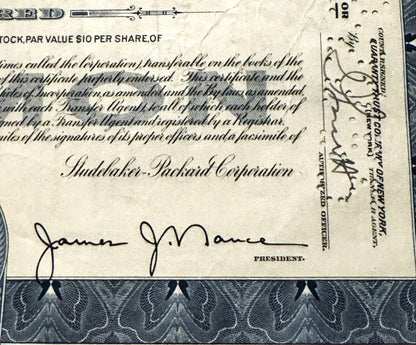 RED
STOCK, PAR VALUE $10 PER SHARE, OF
times called the Corporation), transferable on the books of the
of this certificate properly endorsed. This certificate and the
Articles of Incorporation, as amended, and the By-laws, as amended,
with each Transfer Agent, to all of which each holder of
signed by a Transfer Agent and registered by a Registrar.
facsimiles of the signatures of its proper officers and a facsimile of
Studebaker-Packard Corporation
James J. Nance
PRESIDENT.
OR
COUNTERSIGNED:
GUARANTY TRUST CO. OF NEW YORK,
(NEW YORK) TRANSFER AGENT.
By
AUTHORIZED OFFICER.